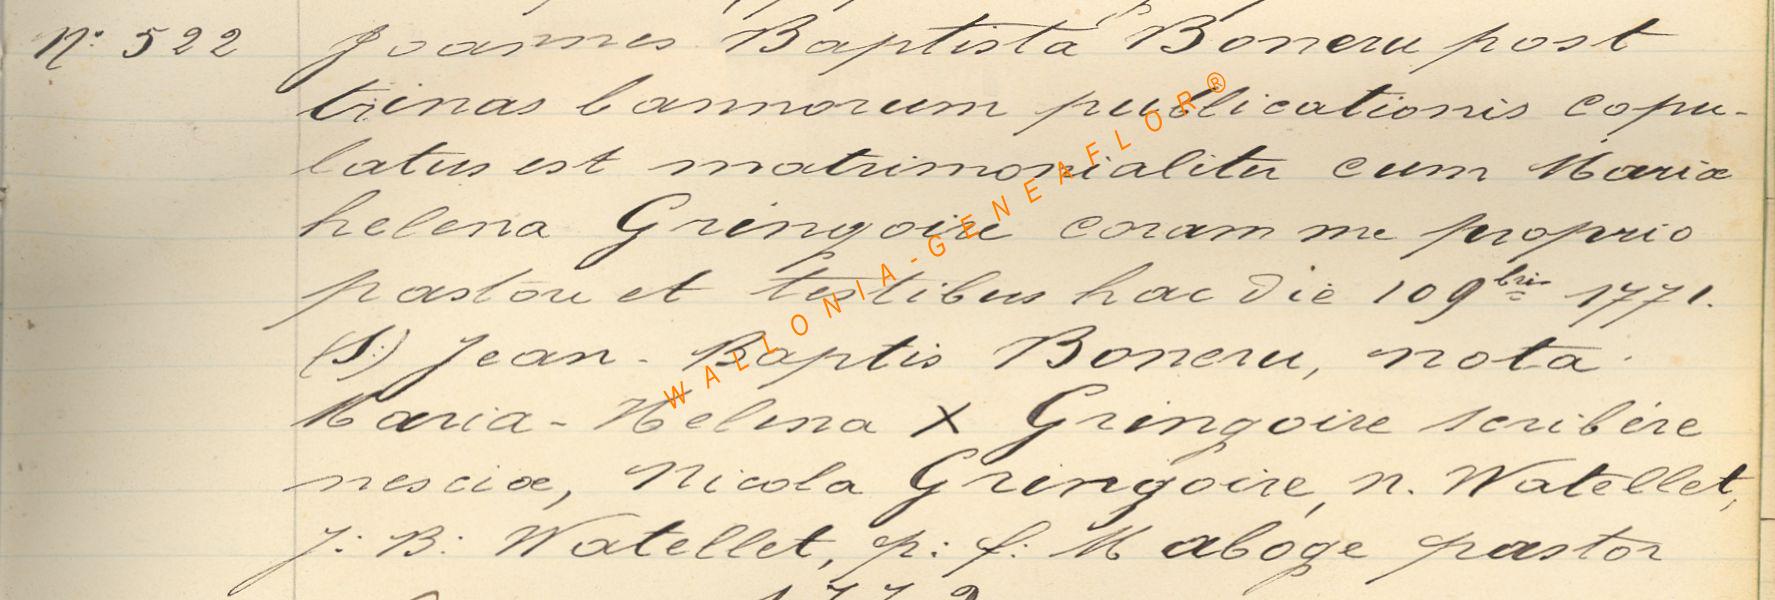 N° 522 Joannes Baptista Boneru post
trinas bannorum publicationis copu-
latus est matrimonialiter cum Mariæ
helena Gringoire coram me proprio
pastore et testibus hac die 10 9bris 1771.
(S:) Jean-Baptis Boneru, nota
Maria-Helena X Gringoire scribere
nesciæ, Nicola Gringoire, n. Watellet,
J: B: Watellet, p: f: Maboge pastor
WALLONIA-GENEAFLOR®